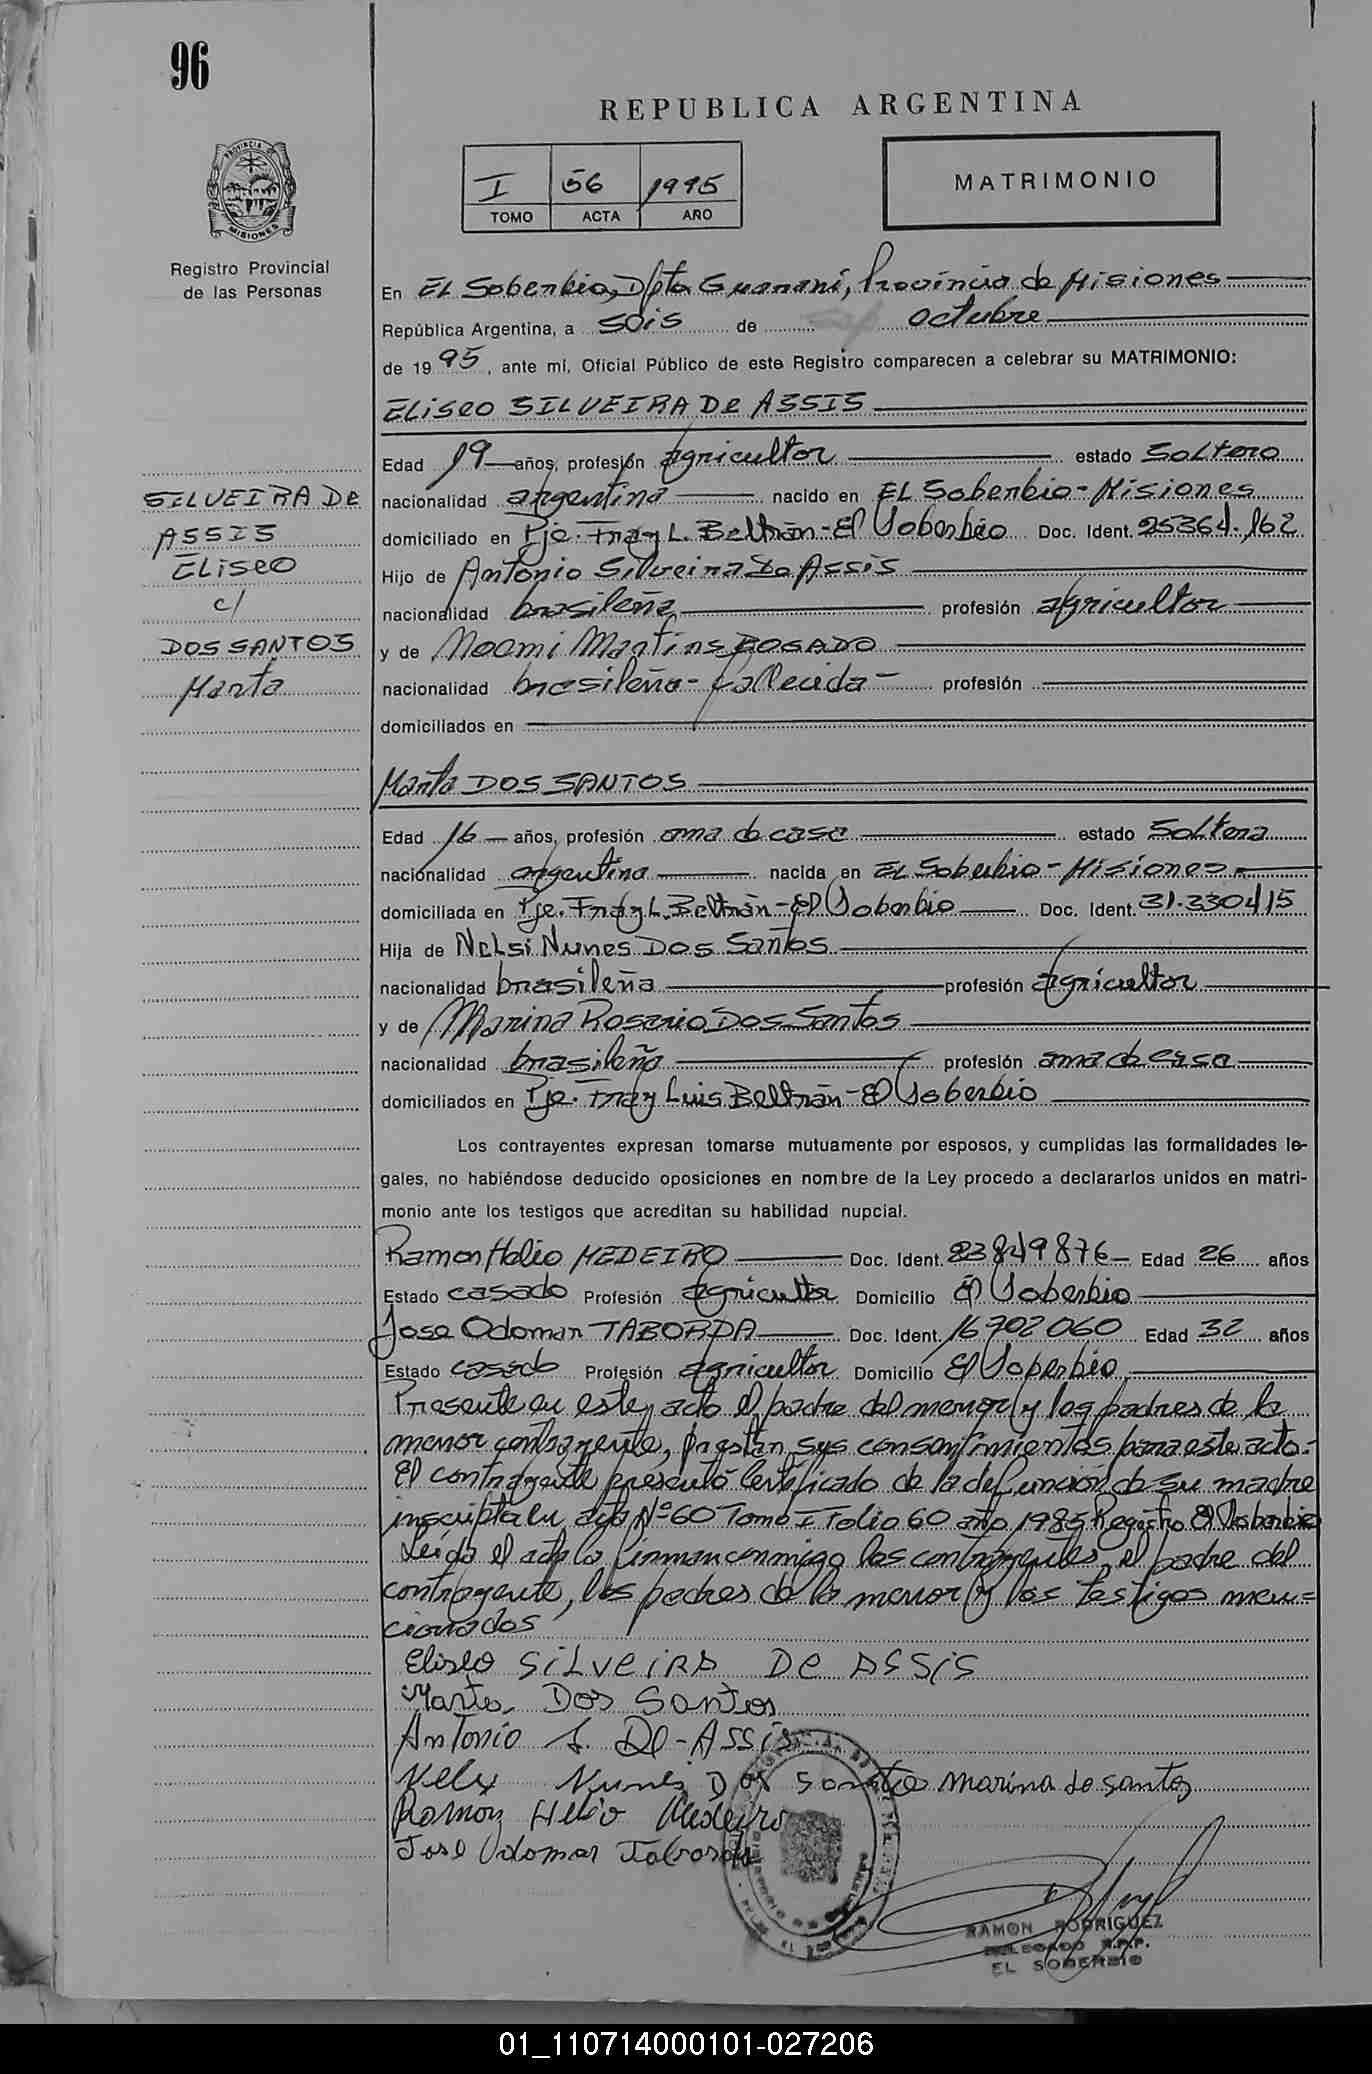 96
REPUBLICA ARGENTINA
I 56 1995
TOMO ACTA AÑO
MATRIMONIO
PROVINCIA DE MISIONES
Registro Provincial
de las Personas
En EL Soberbio, Dpto Guaraní, Provincia de Misiones
República Argentina, a seis de octubre
de 19 95, ante mí, Oficial Público de este Registro comparecen a celebrar su MATRIMONIO:
ELiseo SILVEIRA De ASSIS
Edad 19 años, profesión agricultor estado Soltero
nacionalidad argentina nacido en EL Soberbio - Misiones
domiciliado en Pje. Fray L. Beltrán - El Soberbio Doc. Ident. 25364.162
Hijo de Antonio Silveira De Assis
nacionalidad brasileña profesión agricultor
y de Noemi Martins ROSADO
nacionalidad brasileña - fallecida - profesión
domiciliados en
SILVEIRA De
ASSIS
ELiseo
c/
DOS SANTOS
Marta
Marta DOS SANTOS
Edad 16 años, profesión ama de casa estado Soltera
nacionalidad argentina nacida en EL Soberbio - Misiones
domiciliada en Pje. Fray L. Beltrán - El Soberbio Doc. Ident. 31.330415
Hija de NeLsi Nunes Dos Santos
nacionalidad brasileña profesión agricultor
y de Marina Rosario Dos Santos
nacionalidad brasileña profesión ama de casa
domiciliados en Pje. Fray Luis Beltrán - El Soberbio
Los contrayentes expresan tomarse mutuamente por esposos, y cumplidas las formalidades le-
gales, no habiéndose deducido oposiciones en nombre de la Ley procedo a declararlos unidos en matri-
monio ante los testigos que acreditan su habilidad nupcial.
Ramon Helio MEDEIRO Doc. Ident. 23849876 Edad 26 años
Estado casado Profesión agricultor Domicilio El Soberbio
Jose Odomar TABORDA Doc. Ident. 16702060 Edad 32 años
Estado casado Profesión agricultor Domicilio El Soberbio
Presente en este acto el padre del menor y los padres de la
menor contrayente, prestan sus consentimientos para este acto.
El contrayente presentó certificado de la defunción de su madre
inscripta en acta Nº 60 Tomo I Folio 60 año 1985 Registro El Soberbio
Leída el acta la firman conmigo los contrayentes, el padre del
contrayente, los padres de la menor y los testigos men=
cionados
Eliseo SiLVeiRA De ASSiS
Marta Dos Santos
Antonio S. De-Assis
Nelsy Nunes Dos Santos Marina do santos
Ramon Helio Medeiro
Jose Odomar Taborda
RAMON RODRIGUEZ
DELEGADO R.P.P.
EL SOBERBIO
01_110714000101-027206